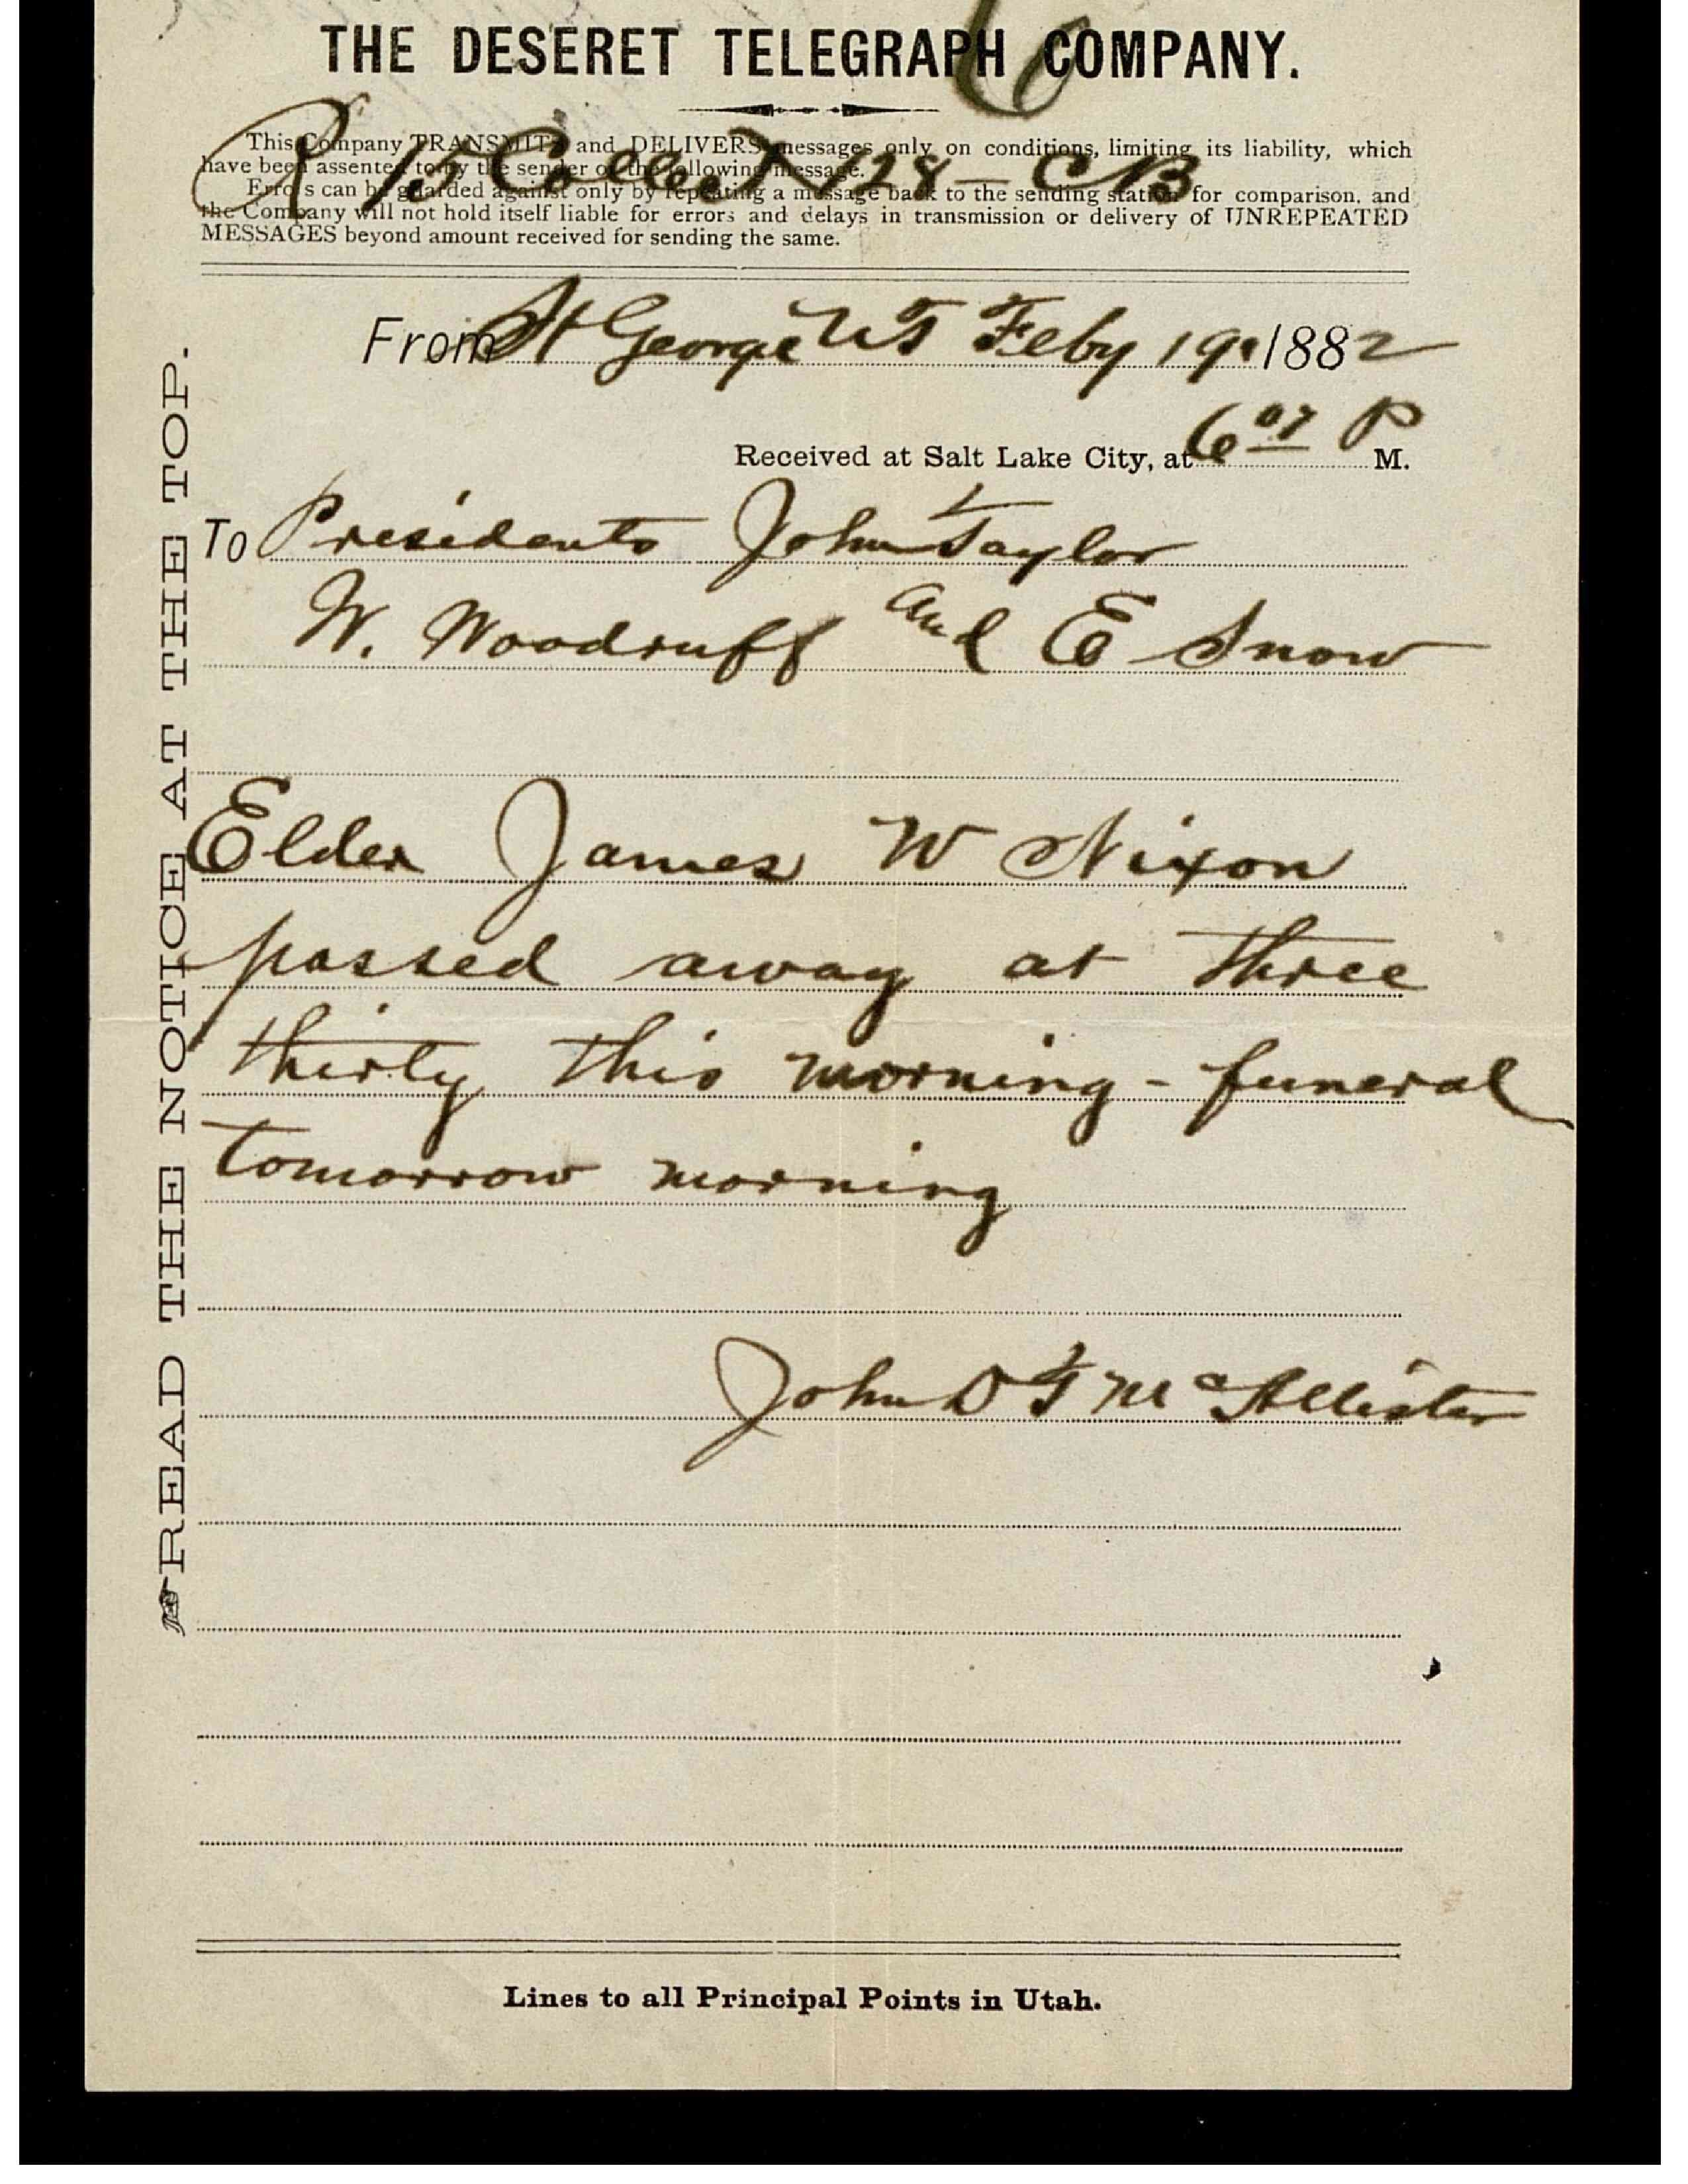 THE DESERET TELEGRAPH COMPANY.
This Company TRANSMITS and DELIVERS messages only on conditions, limiting its liability, which
have been assented to by the sender of the following message.
Errors can be guarded against only by repeating a message back to the sending station for comparison, and
the Company will not hold itself liable for errors and delays in transmission or delivery of UNREPEATED
MESSAGES beyond amount received for sending the same.
Collect 128 - CB
From St George UT Feby 19 1882
Received at Salt Lake City, at 6 07 P M.
To Presidents John Taylor
W. Woodruff and E Snow
Elder James W Nixon
passed away at three
thirty this morning - funeral
tomorrow morning
John D T McAllister
READ THE NOTICE AT THE TOP.
Lines to all Principal Points in Utah.